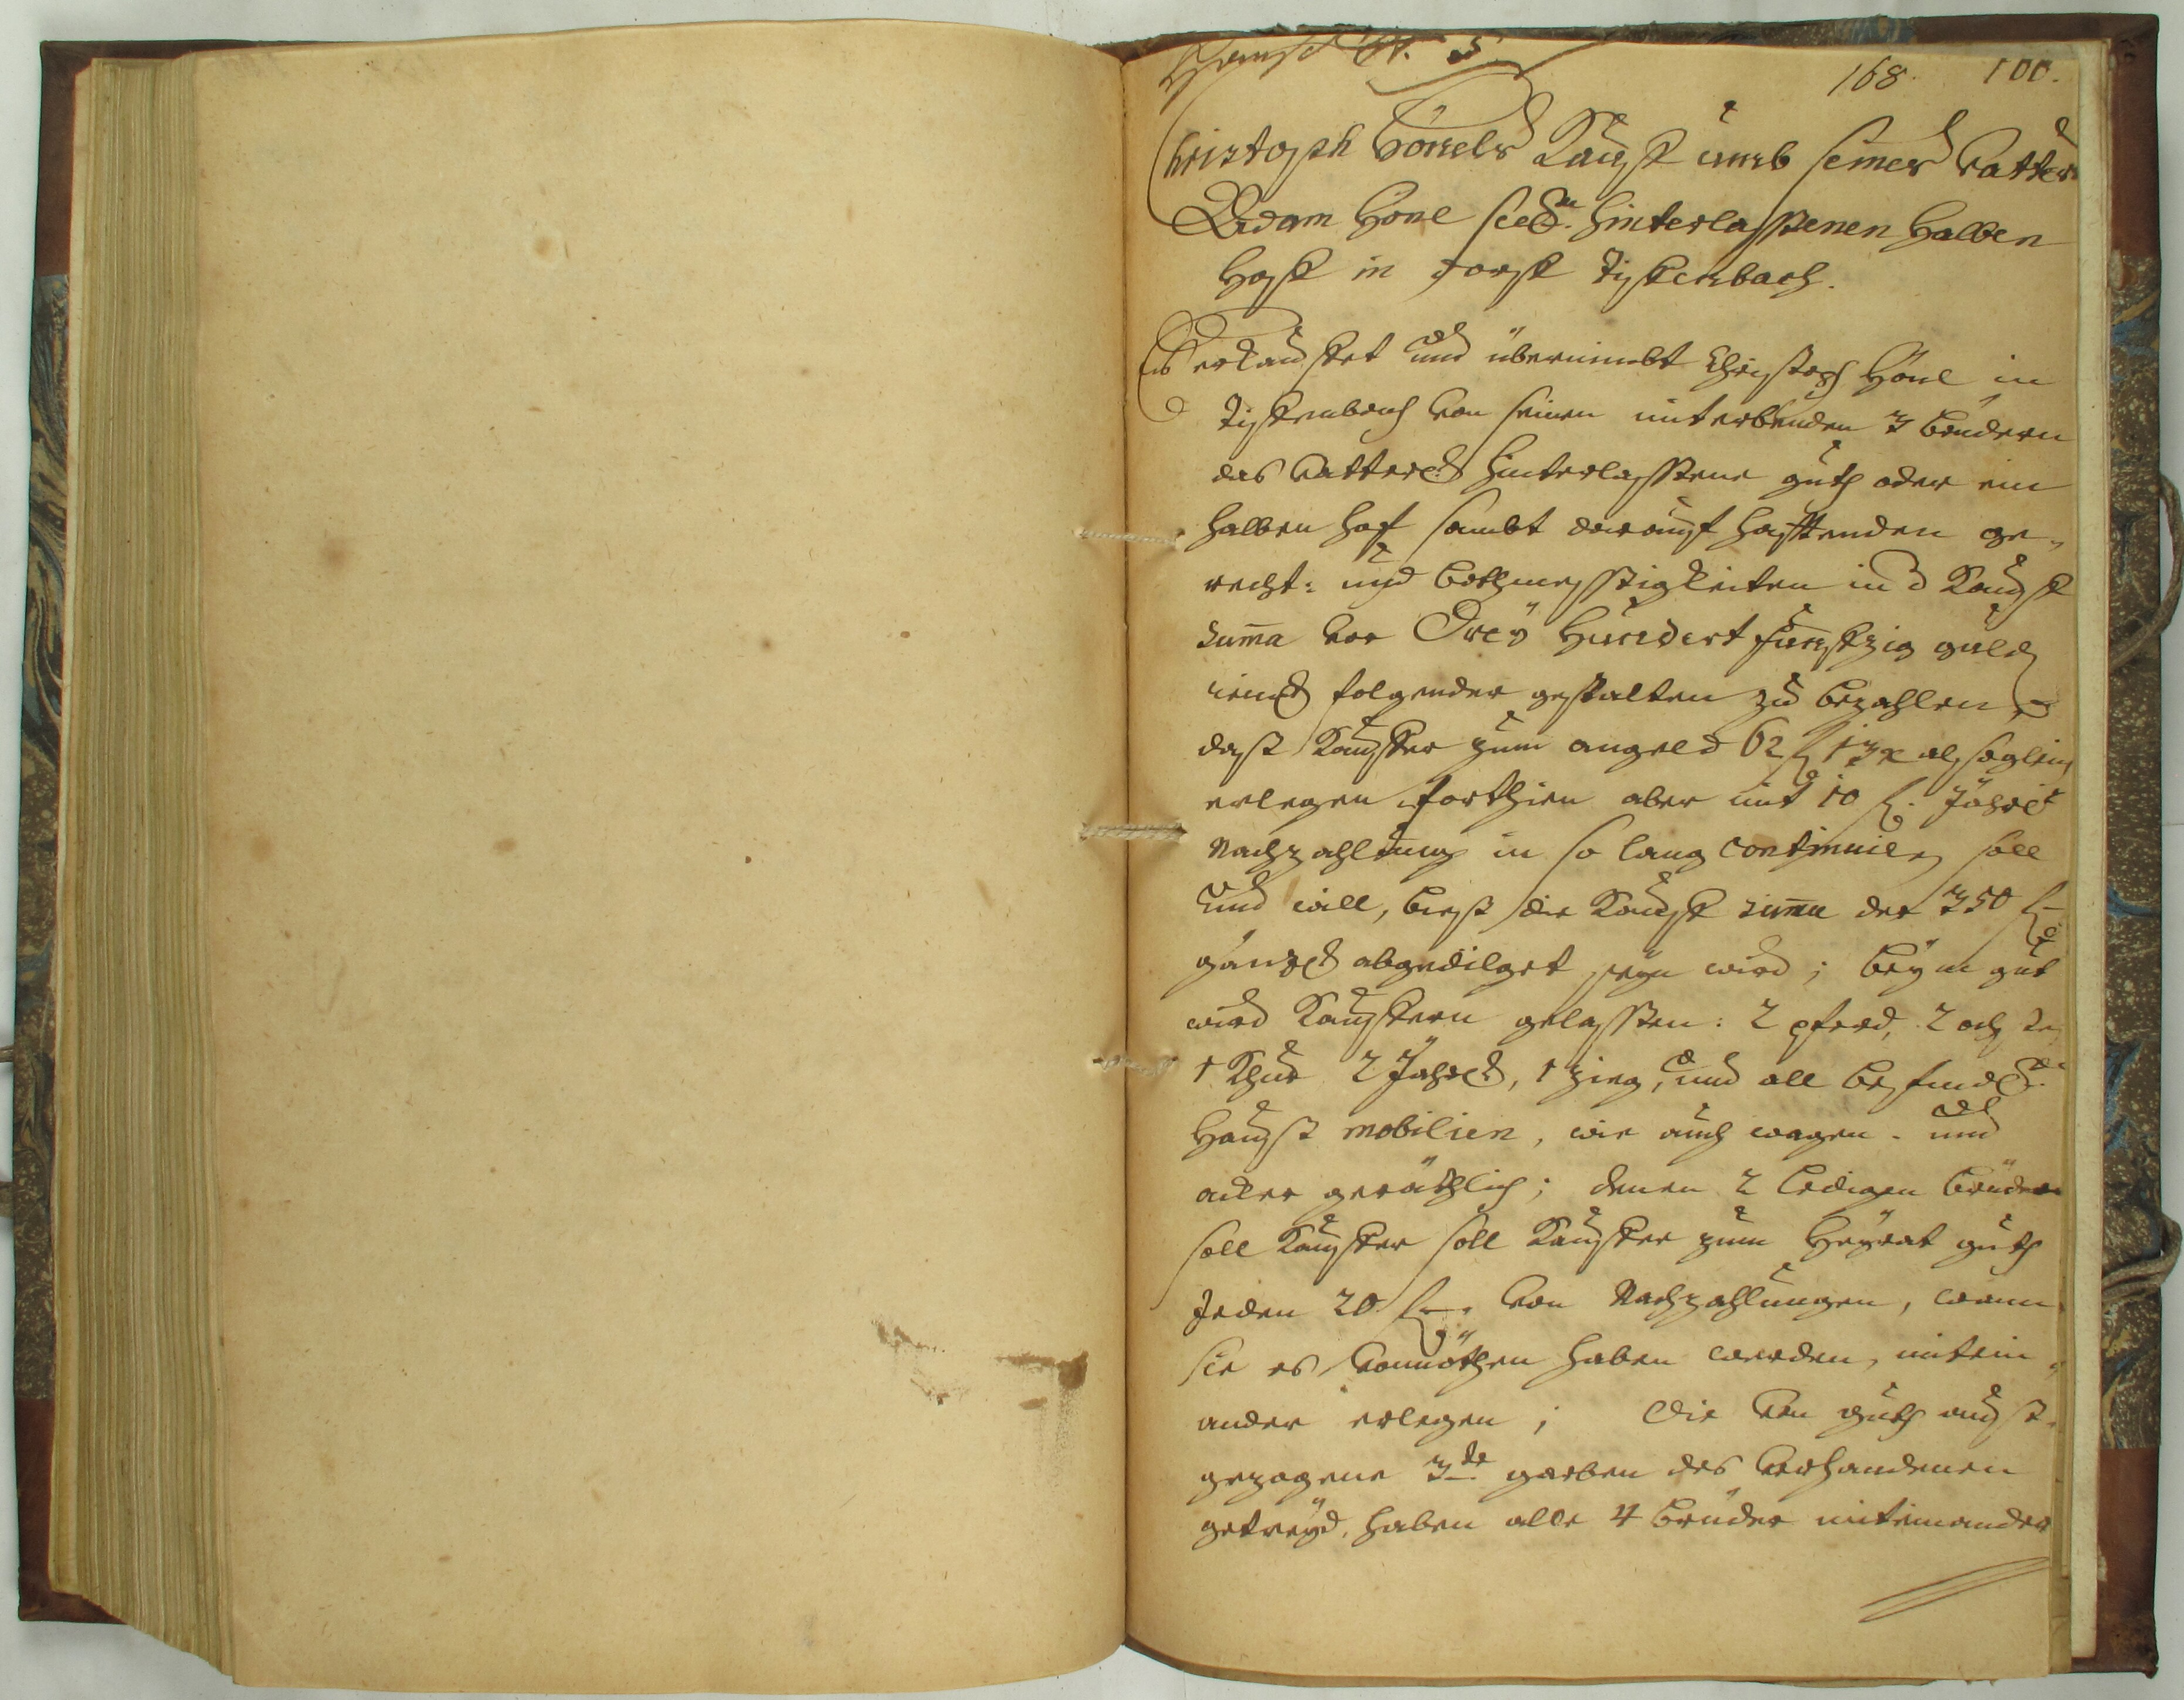 168. 100.
Christoph Hönels Kauff umb seines Vatters
Adam Hönl seel. hinterlassenen halben
Hoff in dorff
Es erkauffet und übernimbt Christoph Hönl in
von seinen miterbenden 3 brüdern
das vatterl. hinterlassene guth oder ein
halben hof sambt darauf hafftenden ge-
recht: und bothmessigkeiten in d Kauff
Suma vor Dreÿ Hundert funffzig guld
folgender gestalten zu bezahlen,
dass Kauffer zum angeld 62 fl 13 x alsogleich
erlegen forthien aber mit 10 fl. Jährl.
Nachzahlung in so lang continuiren soll
und will, biss die Kauff Suma der 350 fl
gänzl. abgedilget seyn wird; beym gut
wird Kauffern gelassen: 2 pferd, 2 ochsen
1 Khue 2 Jähr., 1 zieg, und all befindl.
Hauss mobilien, wie auch wagen- und
acker geräthlich; denen 2 ledigen brüdern
soll Kauffer soll Kauffer zum Heÿrat guth
Jeden 20 fl. von Nachzahlungen, wann
sie es vonnöthen haben werden, mitein-
ander erlegen; Die von guth auss-
gezogene 3te garben des vorhandenen
getreÿd, haben alle 4 brüder miteinander